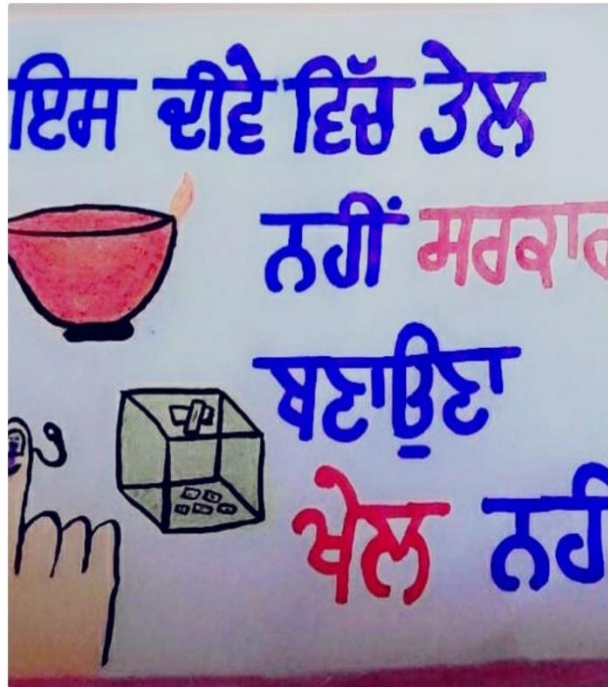 ਇਸ ਦੀਵੇ ਵਿੱਚ ਤੇਲ
ਨਹੀਂ ਸਰਕਾਰ
ਬਣਾਉਣਾ
ਖੇਲ ਨਹੀਂ